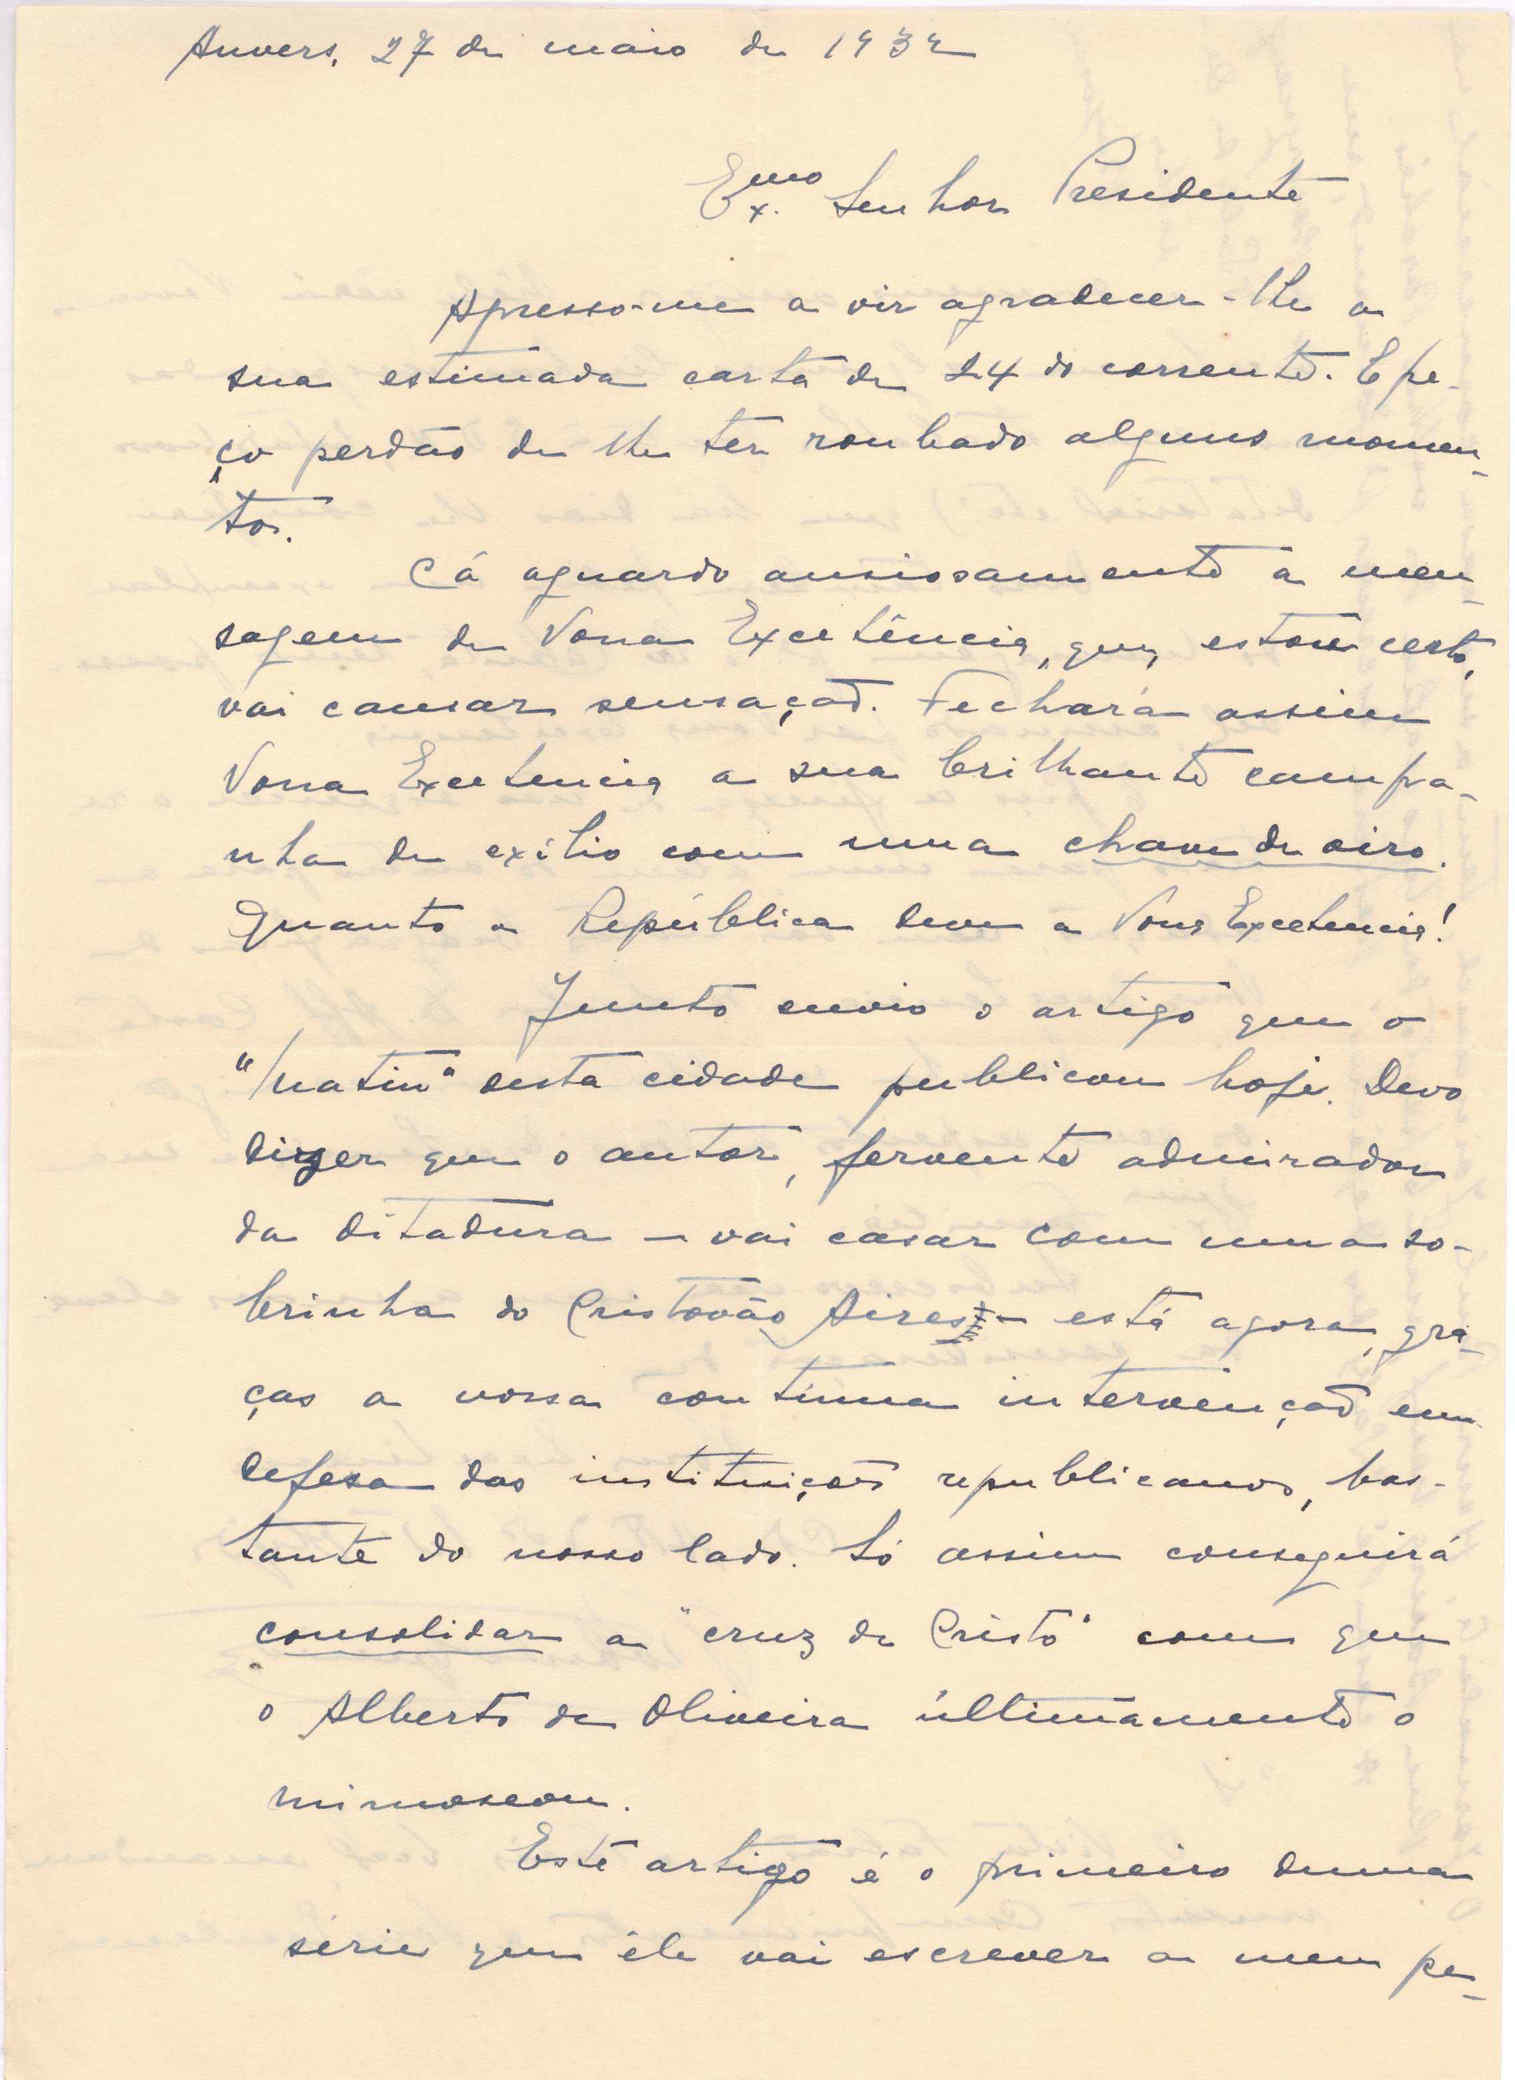 Anvers, 27 de maio de 1932
Exmo. Senhor Presidente
Apresso-me a vir agradecer-lhe a
sua estimada carta de 24 do corrente. E pe-
ço perdão de lhe ter roubado alguns momen-
tos.
Cá aguardo ansiosamente a men-
sagem de Vossa Excelência, que, estou certo,
vai causar sensação. Fechará assim
Vossa Excelencia a sua brilhante campa-
nha de exílio com uma chave de oiro.
Quanto a República deve a Vossa Excelencia!
Junto envio o artigo que o
"Matin" desta cidade publicou hoje. Devo
dizer que o autor, fervente admirador
da ditadura — vai casar com uma so-
brinha do Cristovão Aires — está agora, gra-
ças a vossa continua intervenção em
defesa das instituições republicanas, bas-
tante do nosso lado. Só assim conseguirá
consolidar a "cruz de Cristo" com que
o Alberto de Oliveira últimamente o
mimoseou.
Este artigo é o primeiro duma
série que êle vai escrever a meu pe-